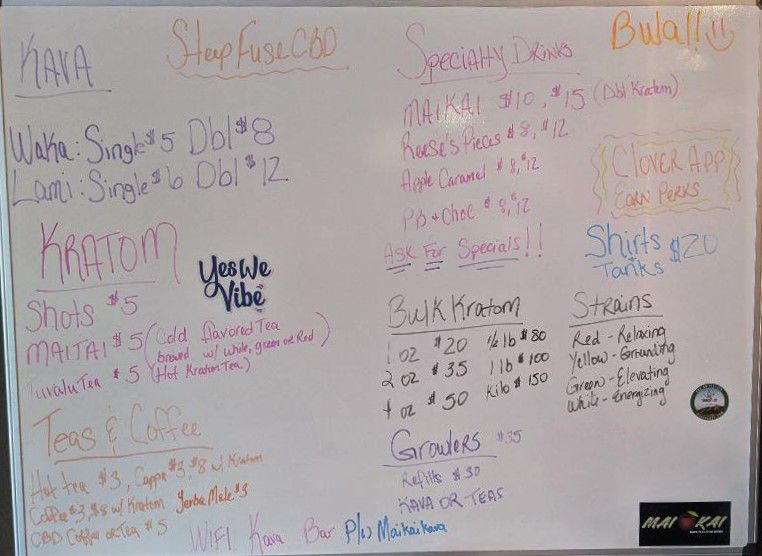 KAVA
Waka: Single $5 Dbl $8
Lami: Single $6 Dbl $12
Steep Fuse CBD
KRATOM
Shots $5
MAITAI $5 (Cold flavored Tea
brewed w/ white, green or Red)
Tuvalu Tea $5 (Hot Kratom Tea)
Yes We
Vibe
Teas & Coffee
Hot tea $3, Cappa $3, $8 w/ Kratom
Coffee $3, $8 w/ Kratom Yerba Mate $3
CBD Coffee or Tea $5
WIFI Kava Bar P/w Maikaikava
Specialty Drinks
MAIKAI $10, $15 (Dbl Kratom)
Reese's Pieces $8, $12
Apple Caramel $8, $12
PB + Choc $8, $12
Ask For Specials!!
Bula!!
CLOVER APP
EARN PERKS
Shirts +
Tanks $20
Bulk Kratom
1 oz $20 1/2 lb $80
2 oz $35 1 lb $100
4 oz $50 Kilo $150
Strains
Red - Relaxing
Yellow - Grounding
Green - Elevating
White - Energizing
Growlers $35
Refills $30
KAVA OR TEAS
MAI KAI